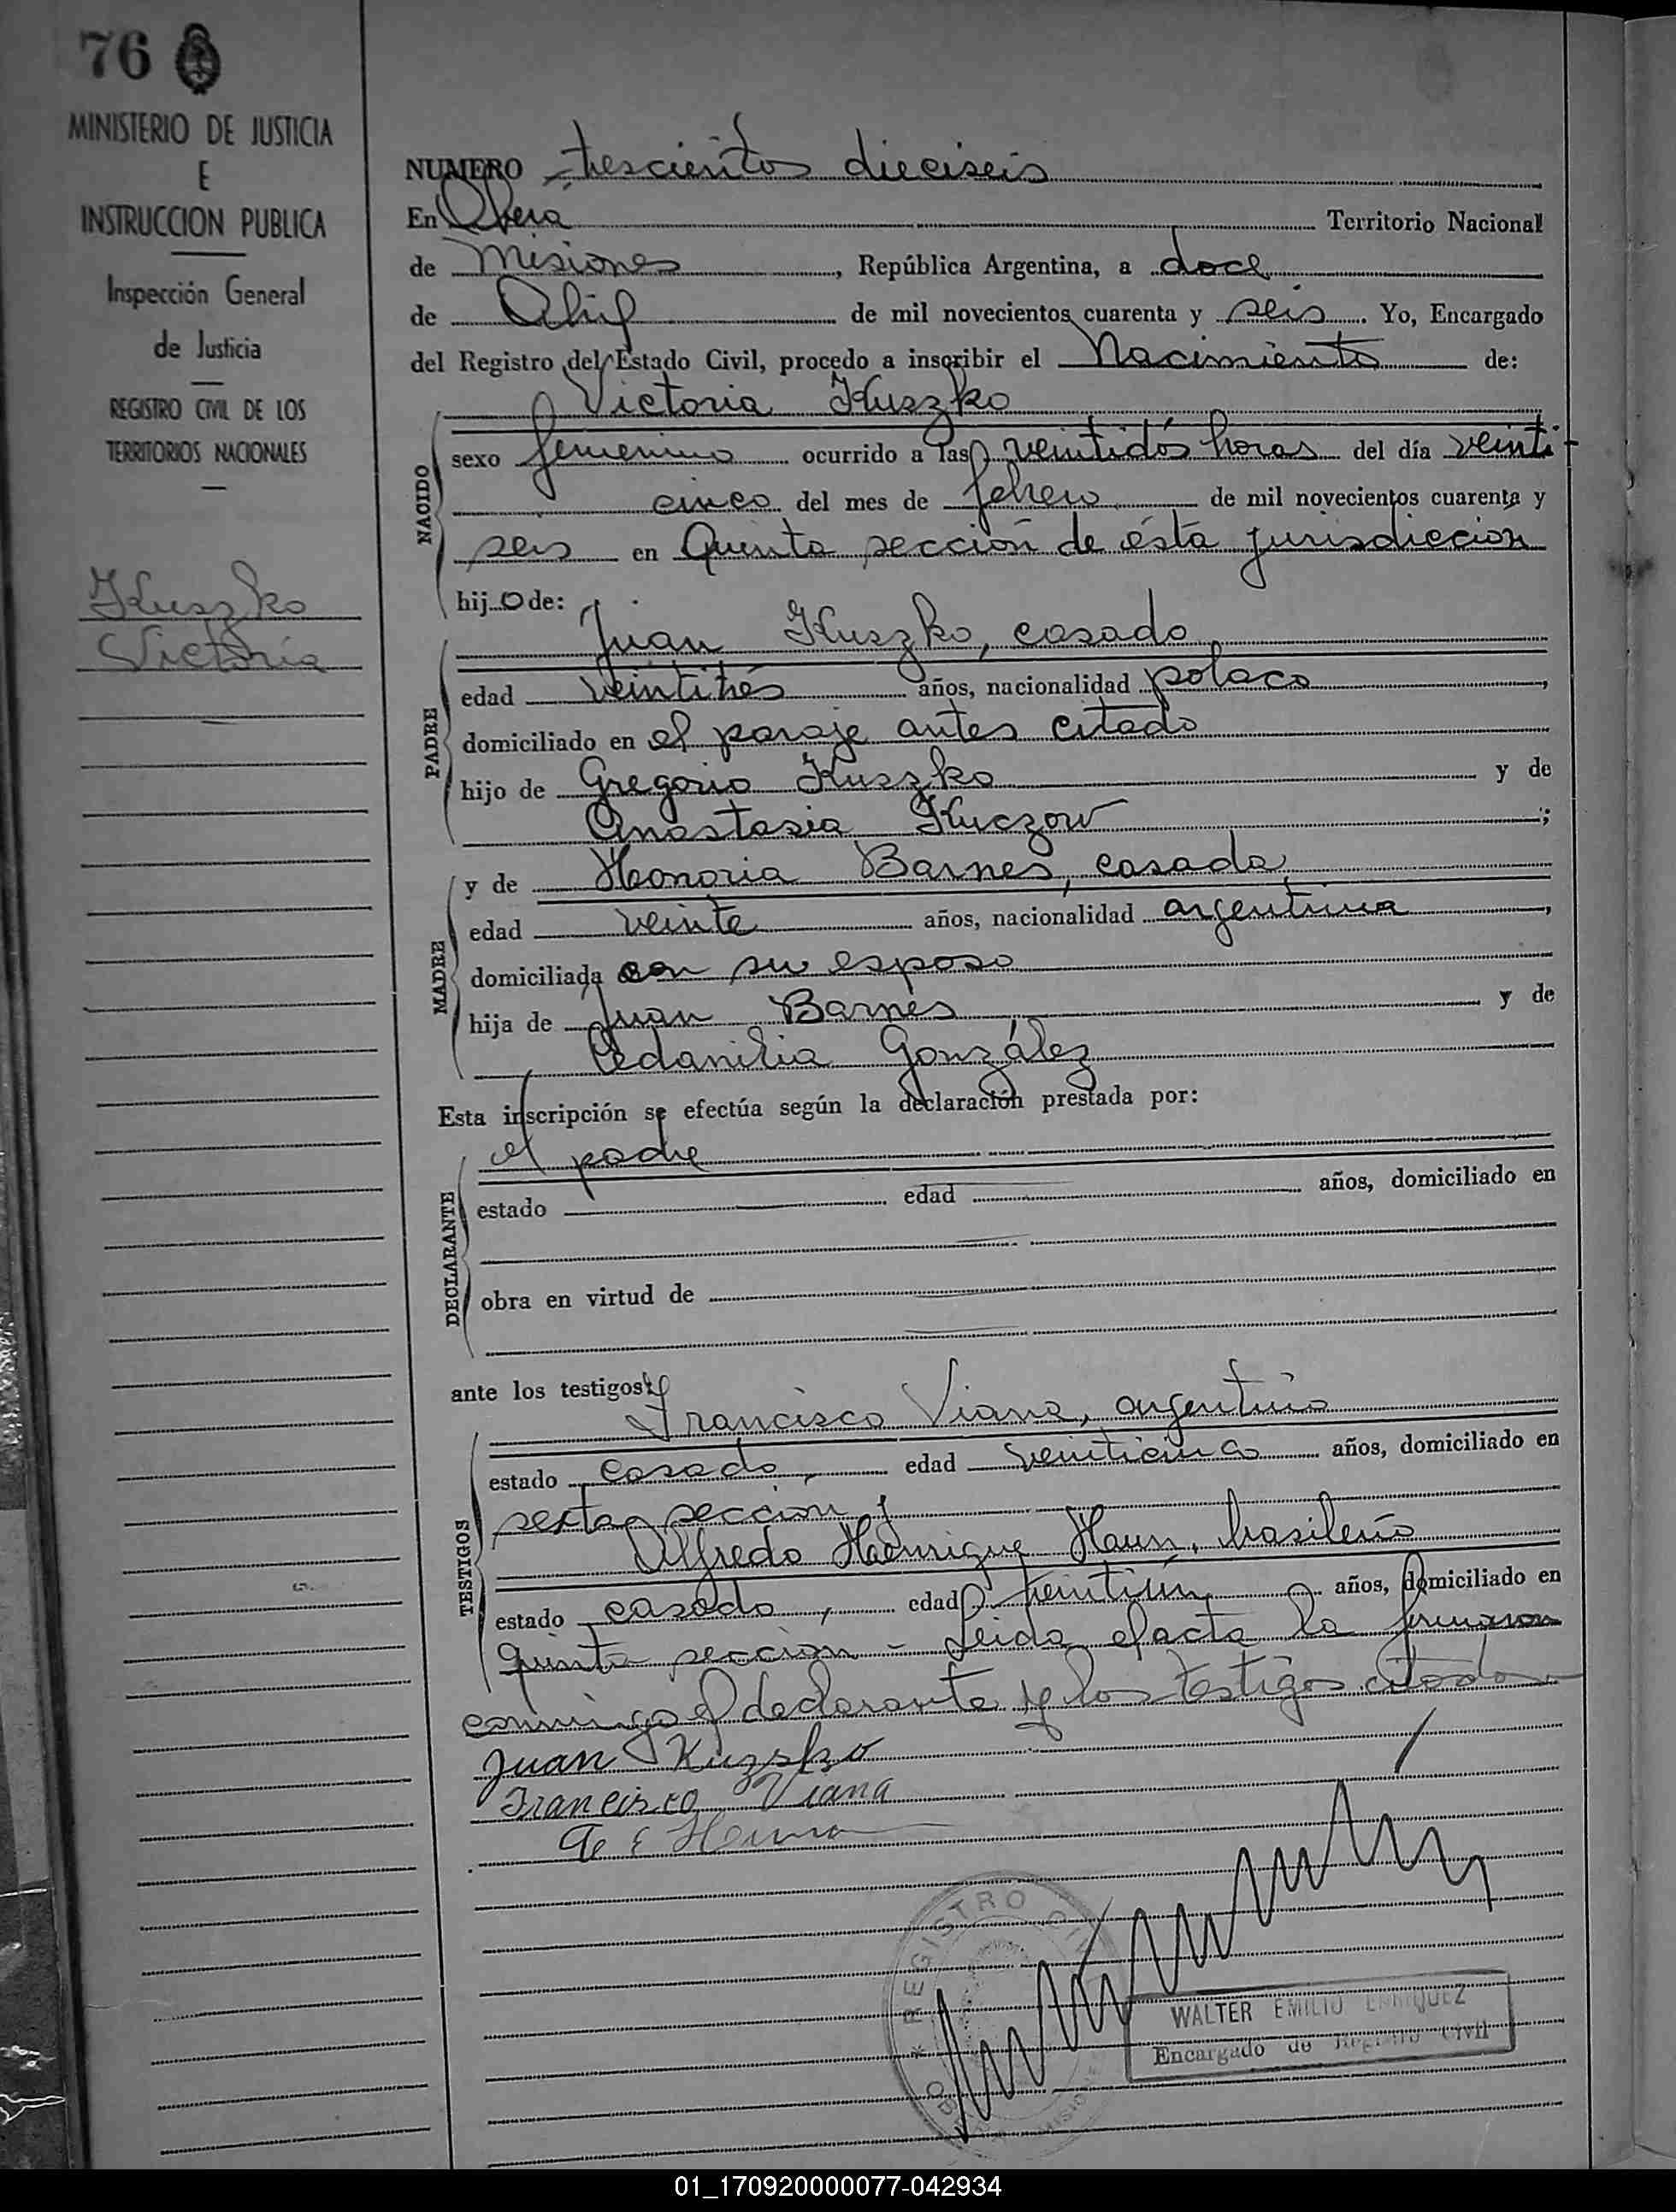 76
MINISTERIO DE JUSTICIA
E
INSTRUCCION PUBLICA
Inspección General
de Justicia
REGISTRO CIVIL DE LOS
TERRITORIOS NACIONALES
Kuszko
Victoria
NUMERO trescientos dieciseis
En Oberá Territorio Nacional
de Misiones, República Argentina, a doce
de Abril de mil novecientos cuarenta y seis. Yo, Encargado
del Registro del Estado Civil, procedo a inscribir el Nacimiento de:
Victoria Kuszko
NACIDO
sexo femenino ocurrido a las veintidós horas del día veinti-
cinco del mes de febrero de mil novecientos cuarenta y
seis en Quinta sección de ésta jurisdicción
hijo de:
Juan Kuszko, casado,
PADRE
edad veintitrés años, nacionalidad polaco,
domiciliado en el paraje antes citado
hijo de Gregorio Kuszko y de
Anastasia Kuczow;
y de Honoria Barnes, casada,
MADRE
edad veinte años, nacionalidad argentina,
domiciliada con su esposo
hija de Juan Barnes y de
Cedanilia González
Esta inscripción se efectúa según la declaración prestada por:
el padre
DECLARANTE
estado edad años, domiciliado en
obra en virtud de
ante los testigos:
Francisco Viana, argentino
TESTIGOS
estado casado, edad veinticinco años, domiciliado en
sexta sección y
Alfredo Haun, brasileño
estado casado, edad años, domiciliado en
quinta sección - Leida el acta la firmaron
conmigo el declarante y los testigos citados
Juan Kuzsko
Francisco Viana
REGISTRO CIVIL
WALTER EMILIO ENRIQUEZ
Encargado de Registro Civil
01_170920000077-042934